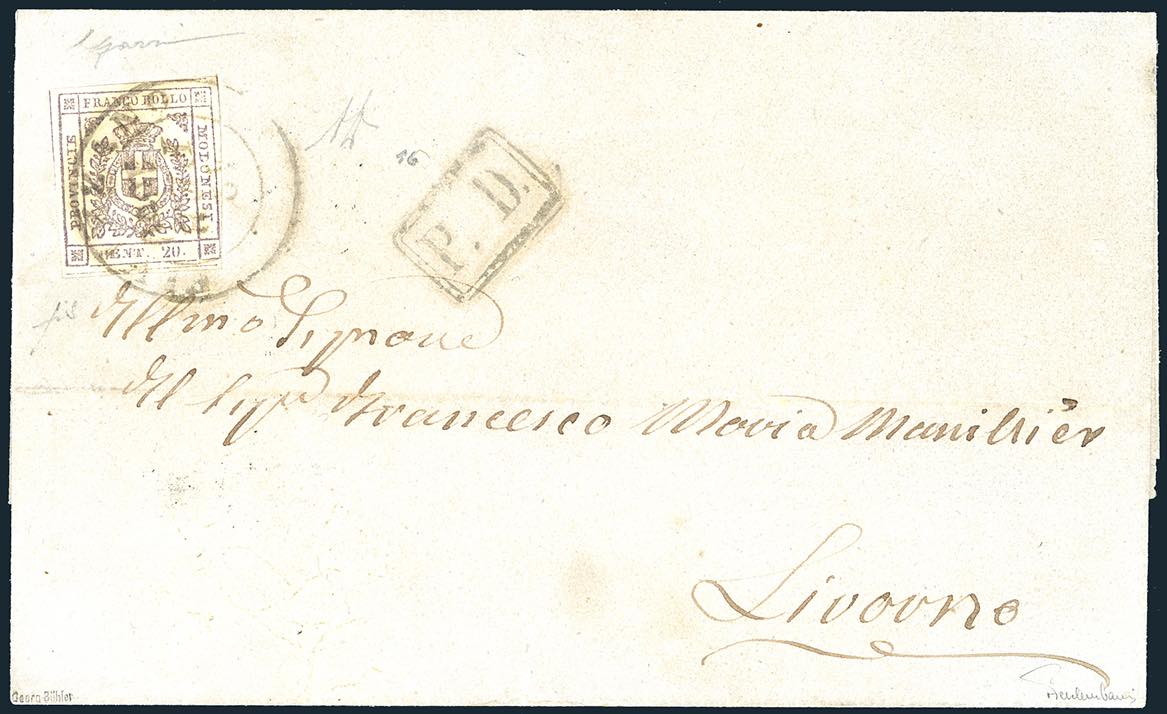 FRANCO BOLLO
PROVINCIE
MODONESI
CENT. 20.
16
P. D.
Illmo Signore
Il Sigr Francesco Maria
Livorno
Georg Bühler